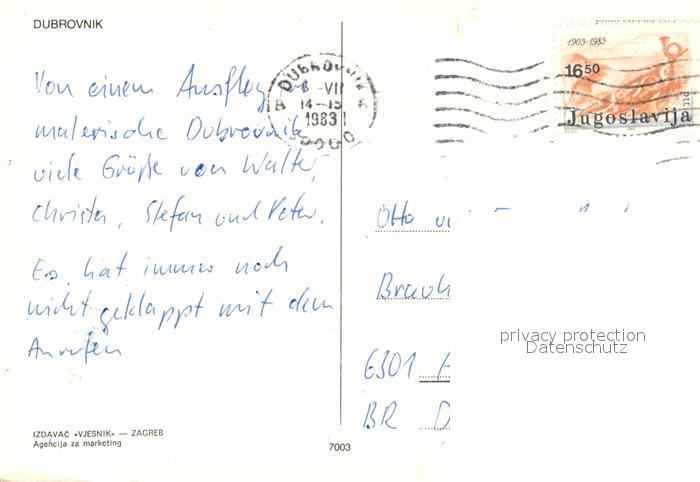 DUBROVNIK
Von einem Ausflug
malerische Dubrovnik
viele Grüße von Walter,
Christa, Stefan und Peter.
Es hat immer noch
nicht geklappt mit dem
Anrufen
IZDAVAČ «VJESNIK» — ZAGREB
Agencija za marketing
7003
DUBROVNIK
6 -VII
14-15
1983
1903-1983
16 50
Jugoslavija
PTT
Otto
6301
BR D
privacy protection
Datenschutz